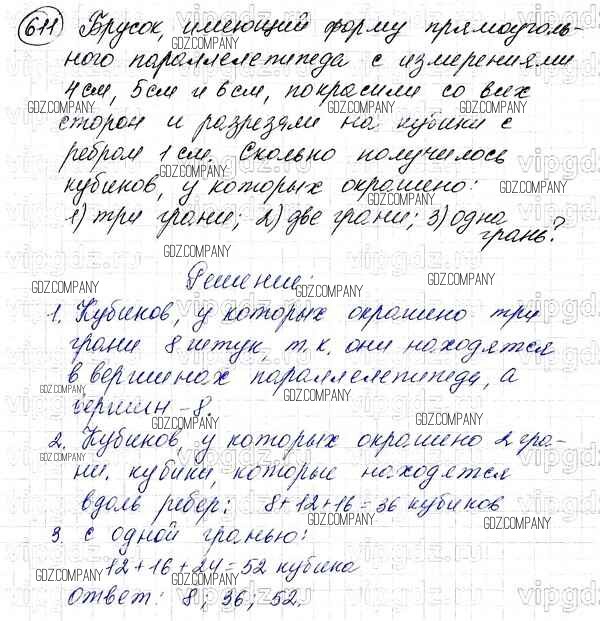 611 Брусок, имеющий форму прямоуголь-
ного параллелепипеда с измерениями
4 см, 5 см и 6 см, покрасили со всех
сторон и разрезали на кубики с
ребром 1 см. Сколько получилось
кубиков, у которых окрашено:
1) три грани; 2) две грани; 3) одна
грань?
Решение:
1. Кубиков, у которых окрашено три
грани 8 штук, т.к. они находятся
в вершинах параллелепипеда, а
вершин - 8.
2. Кубиков, у которых окрашено 2 гра-
ни. кубики, которые находятся
вдоль ребер: 8+12+16=36 кубиков
3. с одной гранью:
12+16+24=52 кубика
ответ: 8; 36; 52.
GDZ.COMPANY
vipgdz.ru